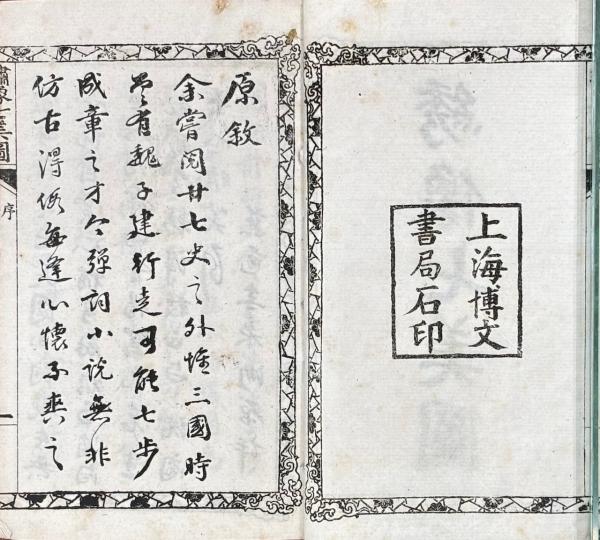 上海博文
書局石印
原敘
余嘗閱廿七史之外惟三國時
曾有魏子建行走可能七步
成章之才今彈詞小說無非
仿古得假每逢心懷不爽之
序
一